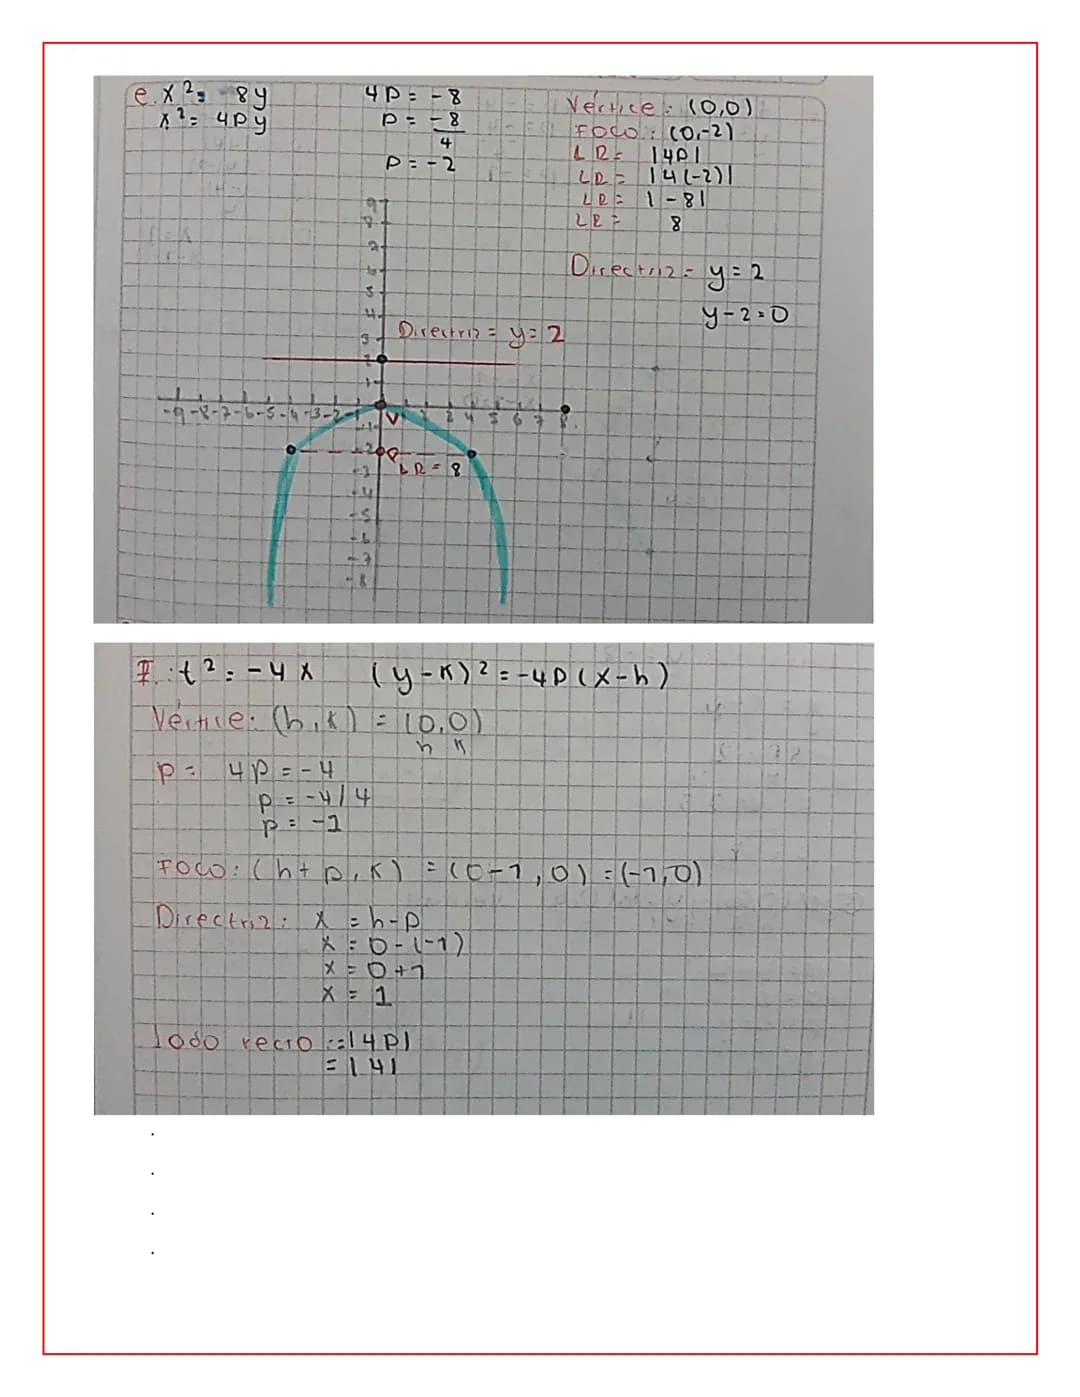 e. x² = -8y
x² = 4Py
4P = -8
P = -8
4
P = -2
Vértice: (0,0)
Foco: (0,-2)
LR = |4P|
LR = |4(-2)|
LR = |-8|
LR = 8
Directriz = y = 2
y-2=0
9
8
7
6
5
4
3
2
1
Directriz = y = 2
-9 -8 -7 -6 -5 -4 -3 -2 -1 V 1 2 3 4 5 6 7 8
-1
-2 P
-3 LR = 8
-4
-5
-6
-7
-8
F. t² = -4x (y-k)² = -4P(x-h)
Vértice: (h,k) = (0,0)
h k
p = 4p = -4
p = -4/4
p = -1
Foco: (h+p,k) = (0-1,0) = (-1,0)
Directriz: x = h-p
x = 0-(-1)
x = 0+1
x = 1
lado recto := |4P|
= |4|
.
.
.
.